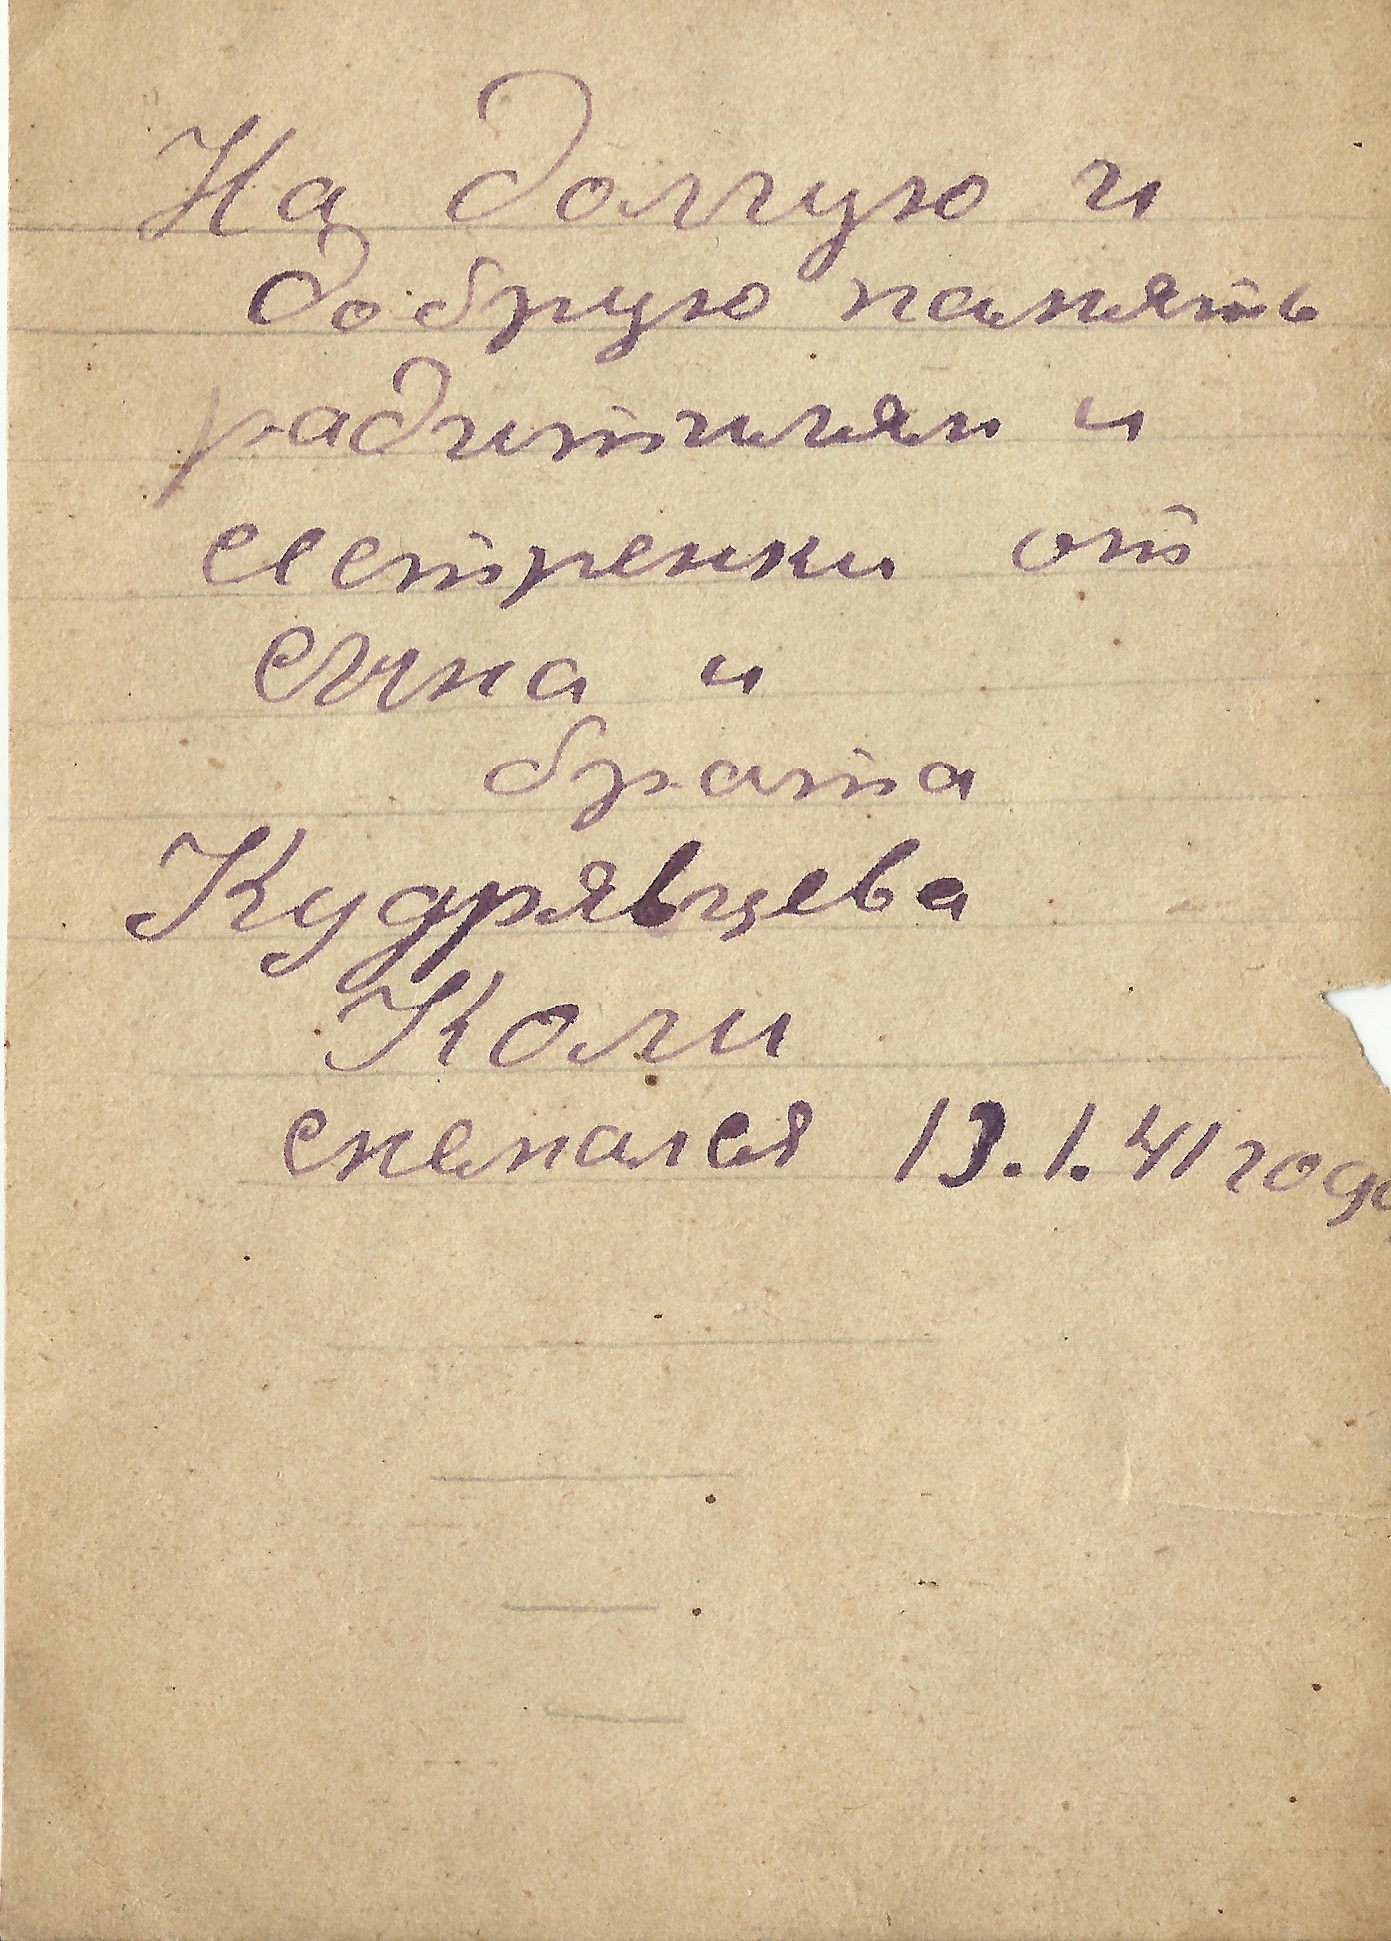 На долгую и
добрую память
радитилям и
сестренки от
сына и
брата
Кудрявцева
Коли
снемался 13.1.41 года